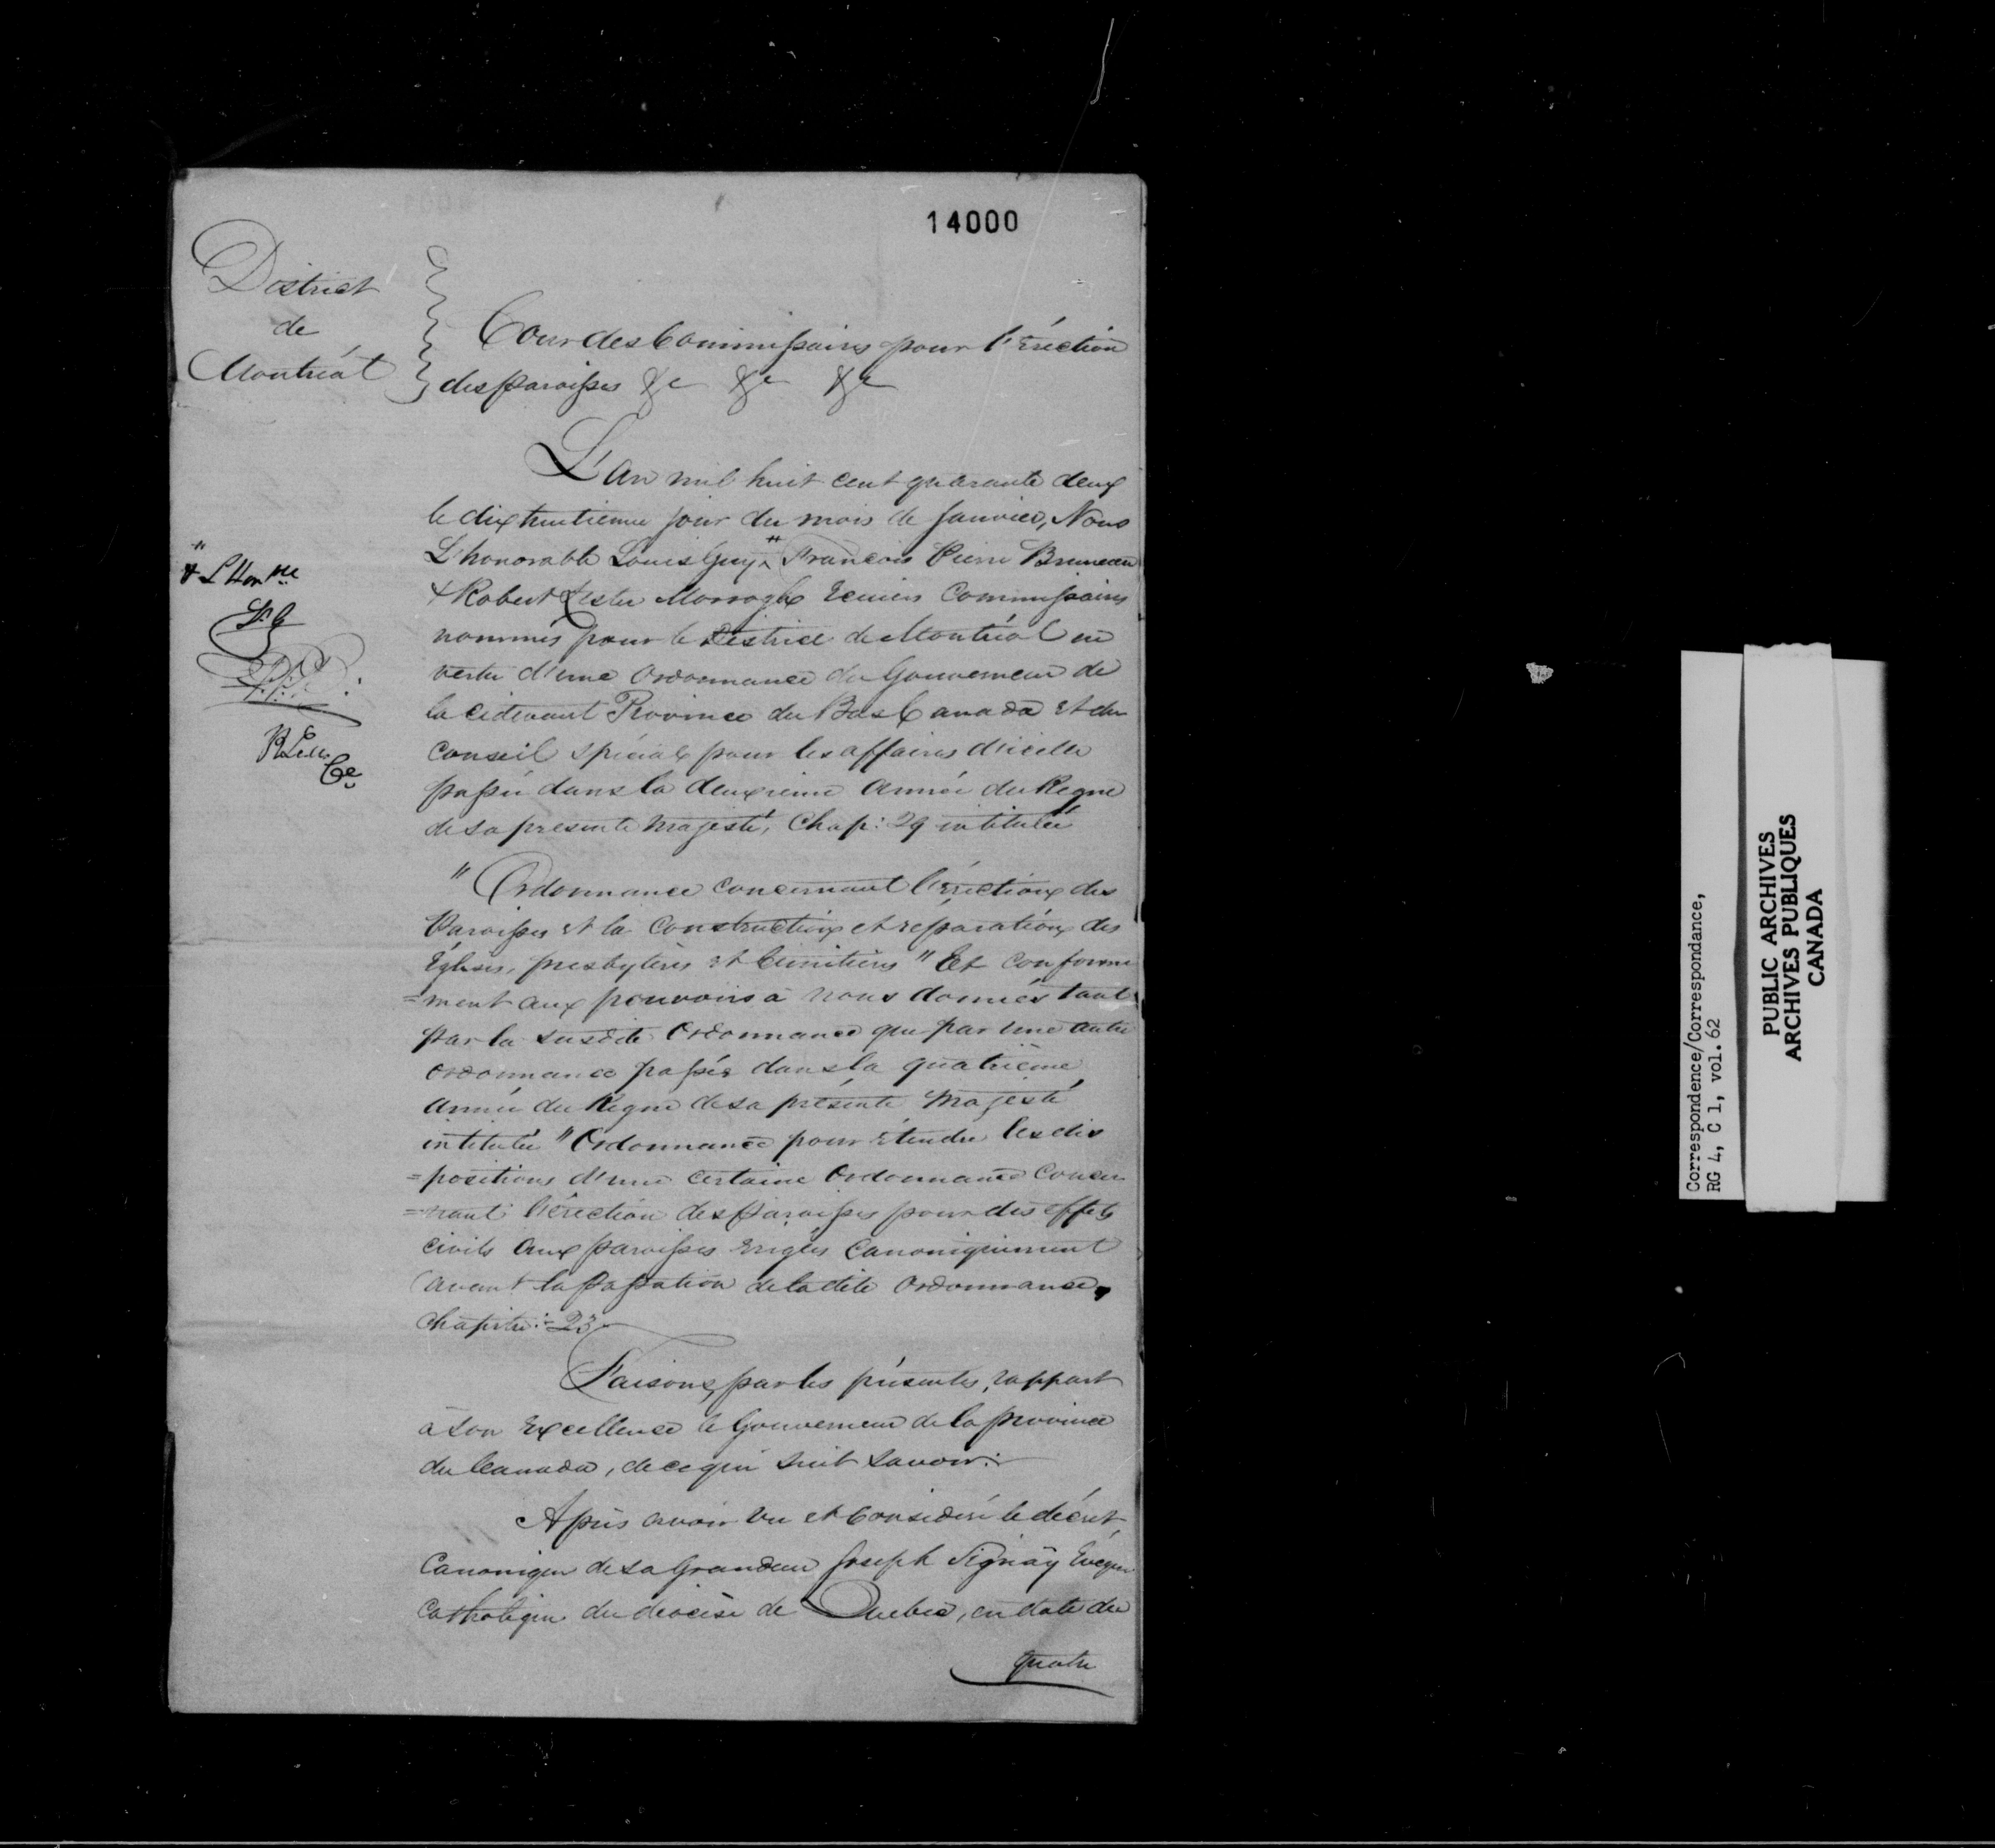 14000
District
de
Montréal
Cour des Commissaires pour l'érection
des paroisses &c &c &c
L'an mil huit cent quarante deux
le dix huitieme jour du mois de Janvier, Nous
L'honorable Louis Guy, " François Pierre Bruneau
& Robert Lester Morrogh Ecuiers Commissaires
nommés pour le District de Montréal en
vertu d'une Ordonnance du Gouverneur de
la cidevant Province du Bas Canada et du
Conseil spécial pour les affaires d'icelle
passée dans la deuxieme année du Regne
de sa presente Majesté, Chap: 29 intitulée
" Ordonnance concernant l'érection des
Paroisses et la Construction et réparation des
Églises, presbytères et Cimitières " Et conformé
=ment aux pouvoirs à nous donnés tant
par la susdite Ordonnance que par une autre
ordonnance passée dans la quatrième
année du Regne de sa présente Majesté
intitulée " Ordonnance pour étendre les dis
=positions d'une certaine Ordonnance Concer
=nant l'érection des paroisses pour des effets
civils aux paroisses érigées Canoniquement
avant la passation de la dite Ordonnance,
Chapitre: 23
Faisons, par les présentes, rapport
à Son Excellence le Gouverneur de la province
du Canada, de ce qui suit savoir:
Après avoir vu et considéré le décret
Canonique de sa Grandeur Joseph Signaÿ Evêque
Catholique du diocèse de Quebec, en date du
quatre
" & L'Honble
L.G
R.L.M.
Ce
Correspondence/Correspondance,
RG 4, C 1, vol. 62
PUBLIC ARCHIVES
ARCHIVES PUBLIQUES
CANADA